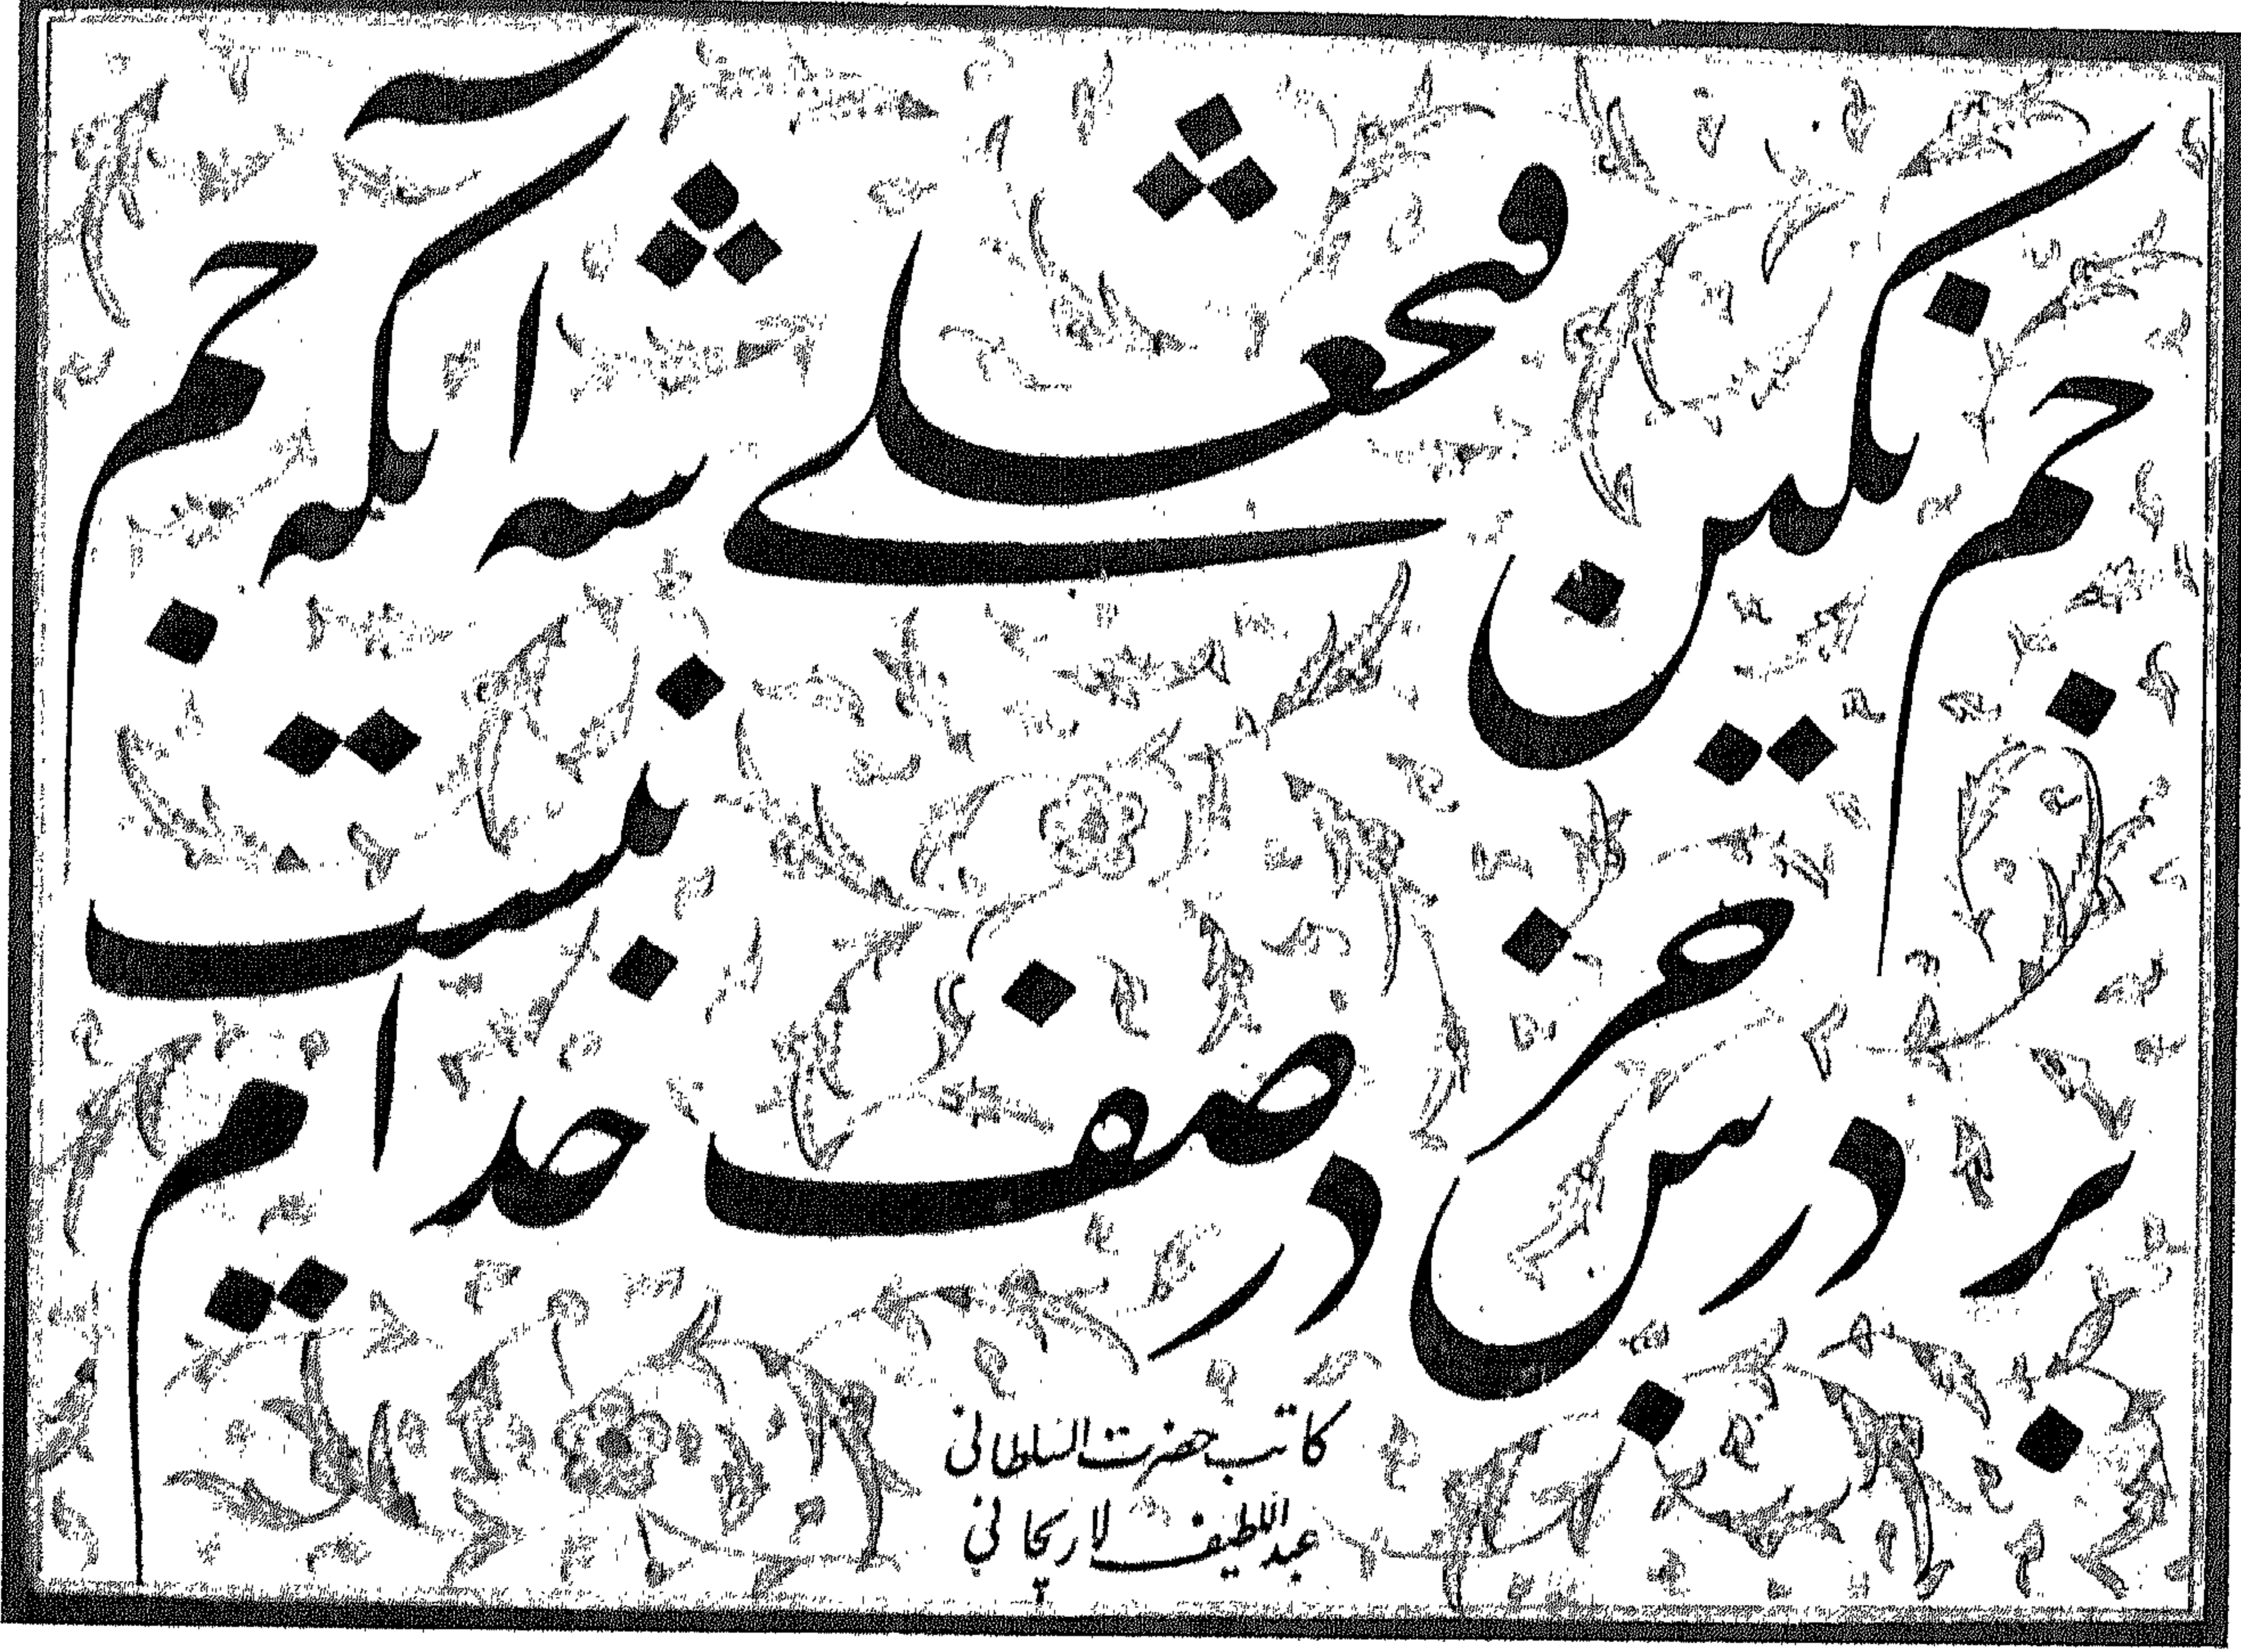 جم نگین فتحعلی شه آنکه جم
بر درش جز در صف خدام نیست
کاتب حضرت السلطانی
عبداللطیف لاریجانی